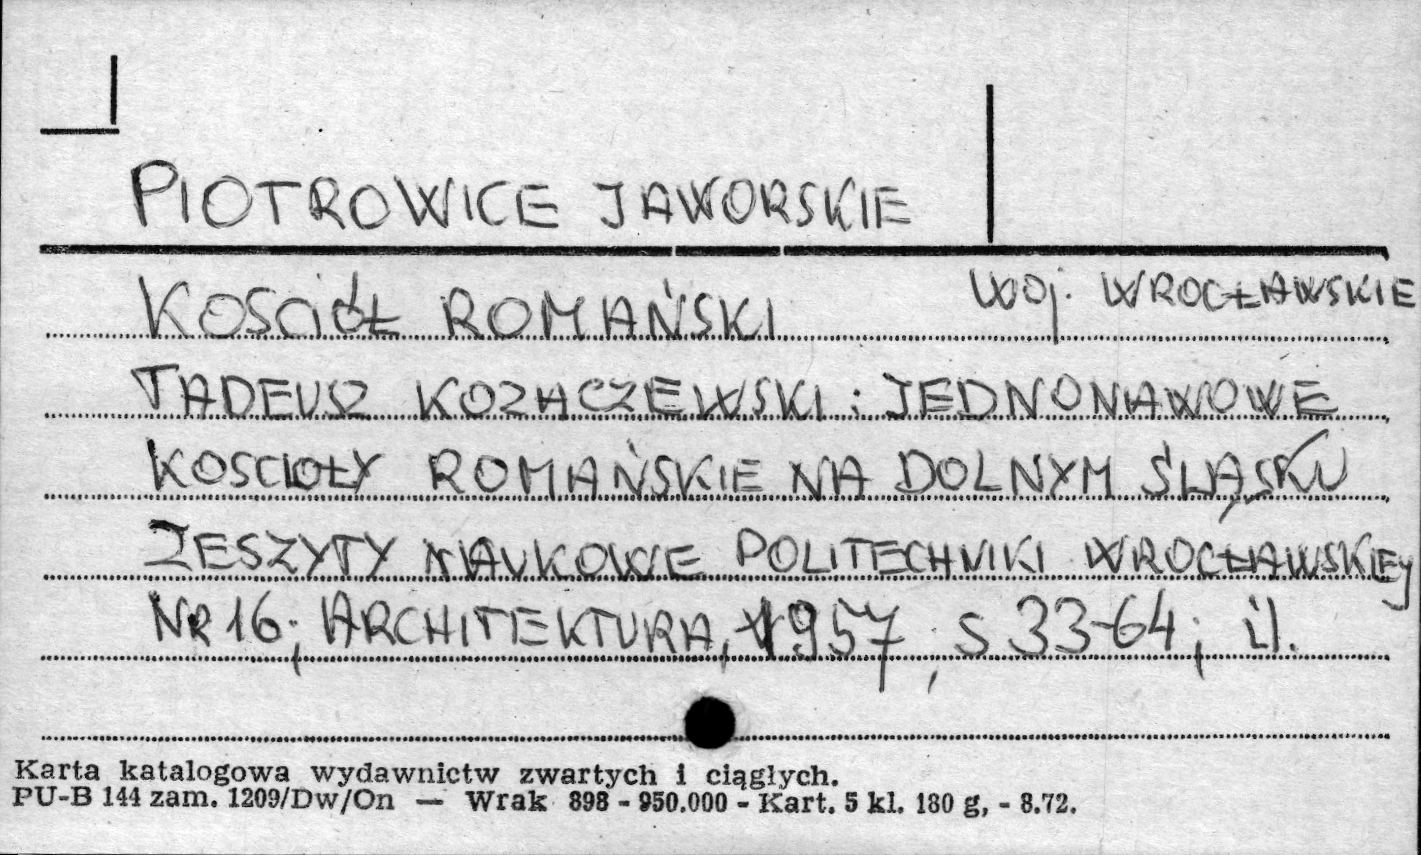 PIOTROWICE JAWORSKIE
KOSCIÓŁ ROMAŃSKI
Woj. WROCŁAWSKIE
TADEUSZ KOZACZEWSKI: JEDNONAWOWE
KOSCIOŁY ROMAŃSKIE NA DOLNYM ŚLĄSKU
ZESZYTY NAUKOWE POLITECHNIKI WROCŁAWSKIEj
NR 16; ARCHITEKTURA, 1957; S 33-64; il.
Karta katalogowa wydawnictw zwartych i ciągłych.
PU-B 144 zam. 1209/Dw/On — Wrak 898 - 950.000 - Kart. 5 kl. 180 g, - 8.72.